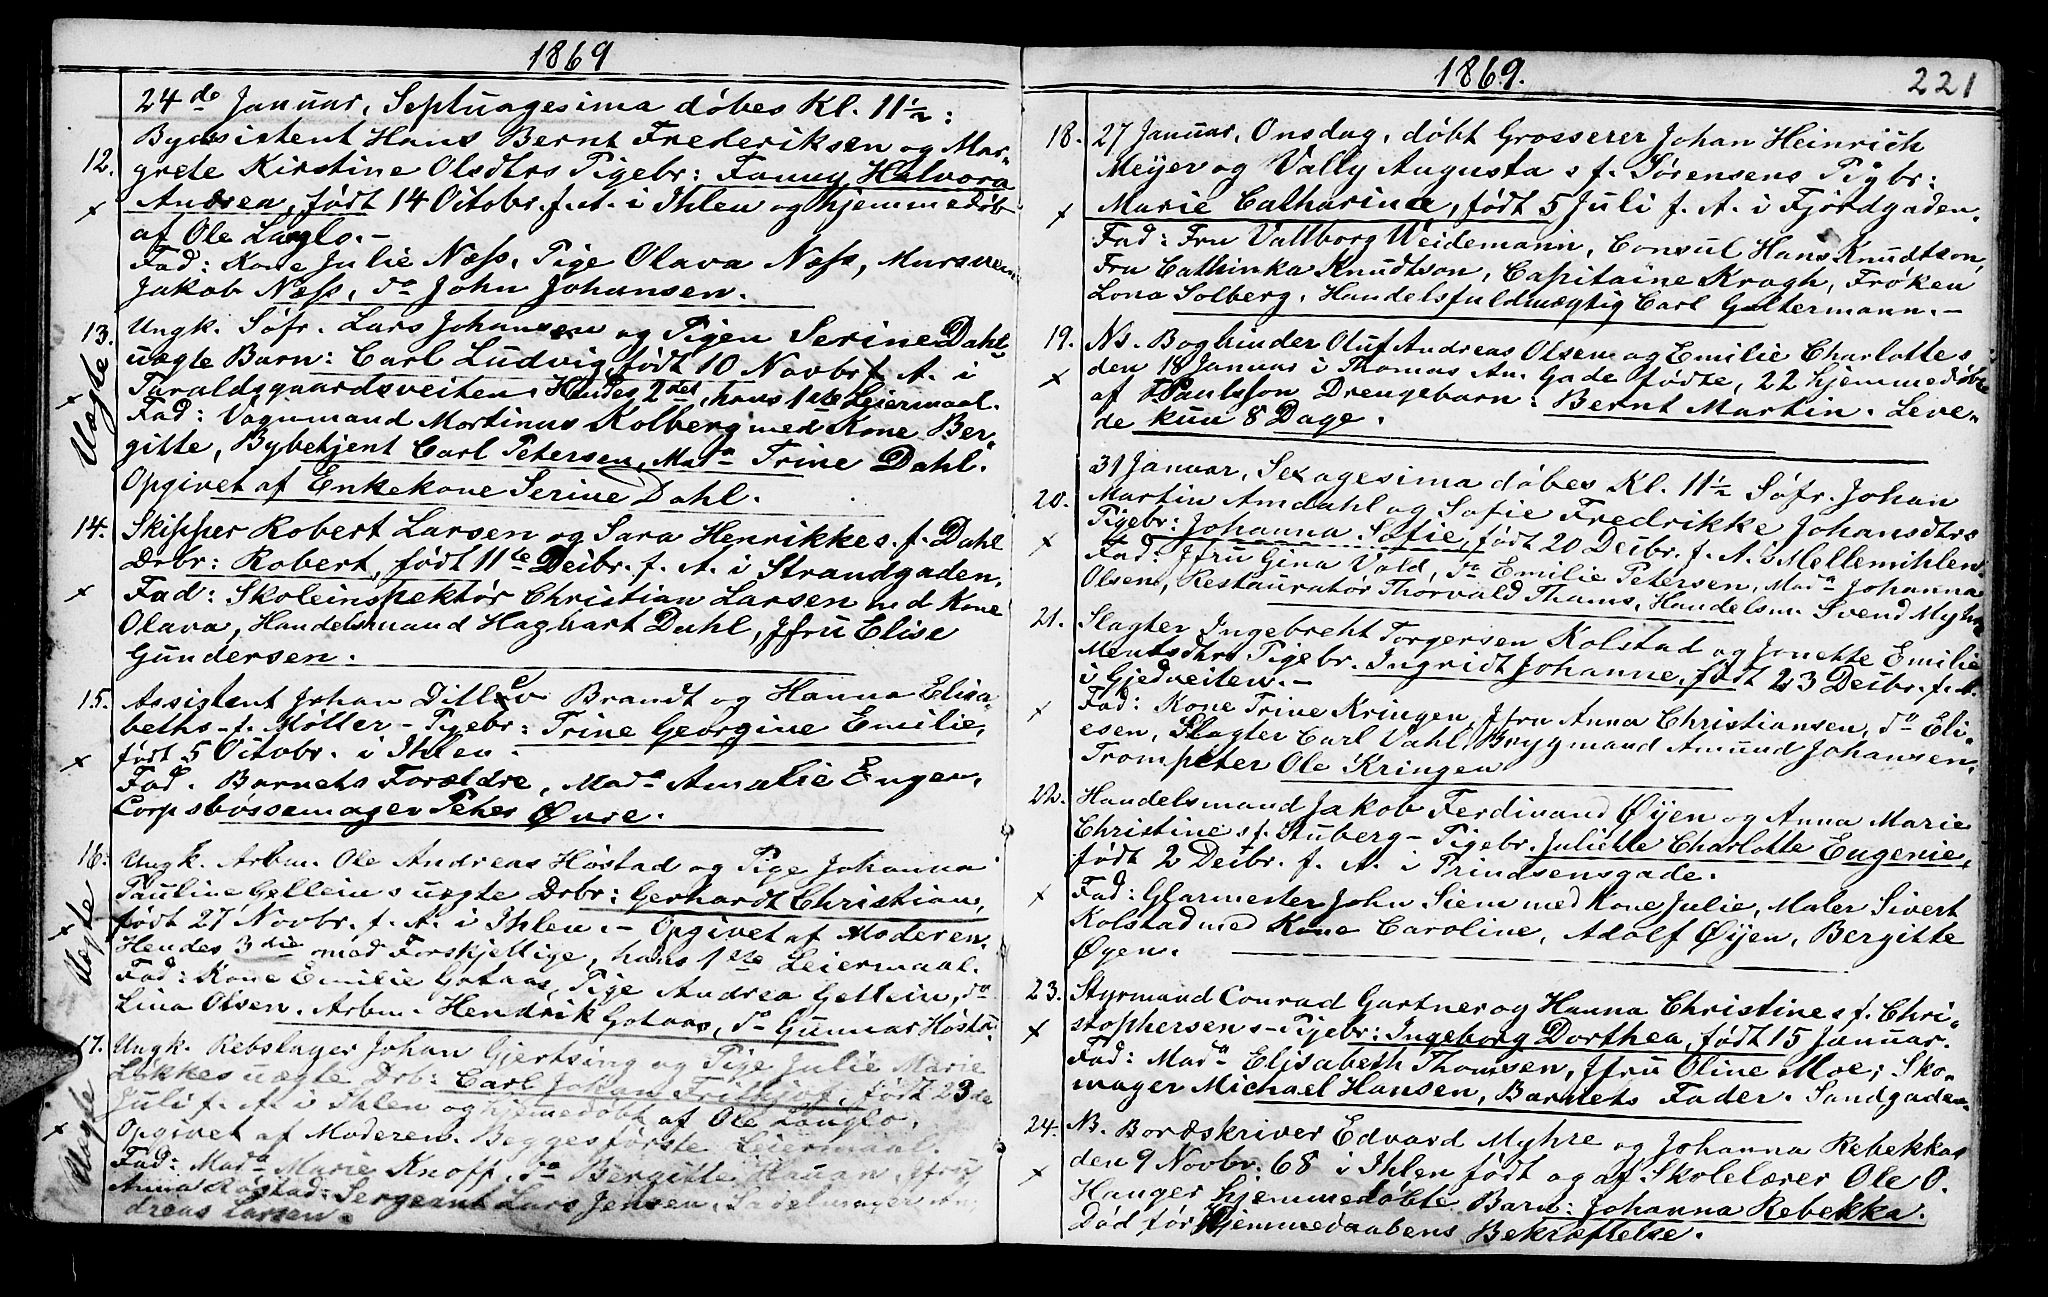 1869
24de Januar, Septuagesima døbes Kl. 11½:
12. Byassistent Hans Bernt Frederiksen og Mar-
grete Kirstine Olsdtrs Pigebr: Fanny Halvora
Andrea, født 14 Octobr. f. A. i Ihlen og hjemmedøb
af Ole Langlo.-
Fad: Kone Julie Næss, Pige Olava Næss, Mursvend
Jakob Næss, do John Johansen.
Uægte
13. Ungk. Søfr. Lars Johansen og Pigen Serine Dahls
uægte Barn: Carl Ludvig, født 10 Novbr f. A. i
Taraldsgaardsveiten. Hendes 2det, hans 1ste Leiermaal.
Fad: Vognmand Martinus Kolberg med Kone Ber-
gitte, Bybetjent Carl Petersen, Mada Trine Dahl.
Opgivet af Enkekone Serine Dahl.
14. Skipper Robert Larsen og Sara Henrikke s. f. Dahl
Drbr: Robert, født 11te Decbr. f. A. i Strandgaden.
Fad: Skoleinspektør Christian Larsen med Kone
Olava, Handelsmand Hagbart Dahl, Jfru Elise
Gundersen.
15. Assistent Johan Ditlev Brandt og Hanna Elisa-
beths f. Møller - Pigebr: Trine Georgine Emilie,
født 5 Octobr. i Ihlen.
Fad. Barnets Forældre, Mada Amalie Engen,
Corpsbøssemager Peter Øvre.
Uægte
16. Ungk. Arbm. Ole Andreas Høstad og Pige Johanna
Pauline Gelleins uægte Drbr: Gerhardt Christian,
født 27 Novbr. f. A. i Ihlen. - Opgivet af Moderen.
Hendes 3die med Forskjellige, hans 1ste Leiermaal.
Fad: Kone Emilie Gotaas, Pige Andrea Gellein, do
Lina Olsen. Arbm. Hendrik Gotaas, do Gunnar Høstad.
Uægte
17. Ungk. Rebslager Johan Gjertsing og Pige Julie Marie
Løkkes uægte Drb: Carl Johan Frithjof, født 23de
Juli f. A. i Ihlen og hjemedøbt af Ole Langlo.
Opgivet af Moderen. Begges første Leiermaal.
Fad: Mada Marie Knoff, do Bergitte Hauan, Jfru
Anna Røstad: Sergeant Lars Jensen, Sadelmager An-
dreas Larsen.
1869. 221
18. 27 Januar, Onsdag, døbt Grosserer Johan Heinrich
Meÿer og Vally Augusta s f. Sørensens Pigbr:
Marie Catharina, født 5 Juli f. A. i Fjordgaden.
Fad: Fru Vallborg Weidemann, Consul Hans Knudtson,
Fru Cathinka Knudtson, Capitaine Kragh, Frøken
Lona Solberg, Handelsfuldmægtig Carl Geltermann. -
19. Ns. Bogbinder Oluf Andreas Olsen og Emilie Charlottes
den 18 Januar i Thomas An. Gade fødte, 22 hjemmedøbte
af Paulsson Drengebarn: Bernt Martin. Leve-
de kun 8 Dage.
31 Januar, Sexagesima døbes Kl. 11½ Søfr. Johan
20. Martin Amdahl og Sofie Fredrikke Johansdtrs
Pigebr: Johanna Sofie, født 20 Decbr. f. A. i Mellemihlen.
Fad: Jfru Gina Vold, do Emilie Petersen, Mada Johanna
Olsen, Restauratør Thorvald Thams, Handelsm. Svend Myhre
21. Slagter Ingebreht Torgersen Kolstad og Jonette Emilie
Mentsdtrs Pigebr. Ingridt Johanne, født 23 Decbr. f. A.
i Gjedveiten.-
Fad: Kone Trine Kringen, Jfru Anna Christiansen, do Eli-
esen, Slagter Carl Vahl, Brygmand Amund Johansen,
Trompeter Ole Kringen
22. Handelsmand Jakob Ferdinand Øÿen og Anna Marie
Christine s f. Stuberg - Pigebr. Juliette Charlotte Eugenie,
født 2 Decbr. f. A. i Prindsensgade.
Fad: Glarmester John Siem med Kone Julie, Maler Sivert
Kolstad med Kone Caroline, Adolf Øÿen, Bergitte
Øyen.
23. Styrmand Conrad Gartner og Hanna Christine s f. Chri-
stophersens - Pigebr: Ingeborg Dorthea, født 15 Januar.
Fad: Mada Elisabeth Thomsen, Jfru Oline Moe; Sko-
mager Michael Hansen, Barnets Fader. Sandgaden.
24. N. Bordskriver Edvard Myhre og Johanna Rebekkas
den 9 Novbr. 68 i Ihlen født og af Skolelærer Ole O.
Hanger hjemmedøbte Barn: Johanna Rebekka.
Død før Hjemmedaabens Bekræftelse.